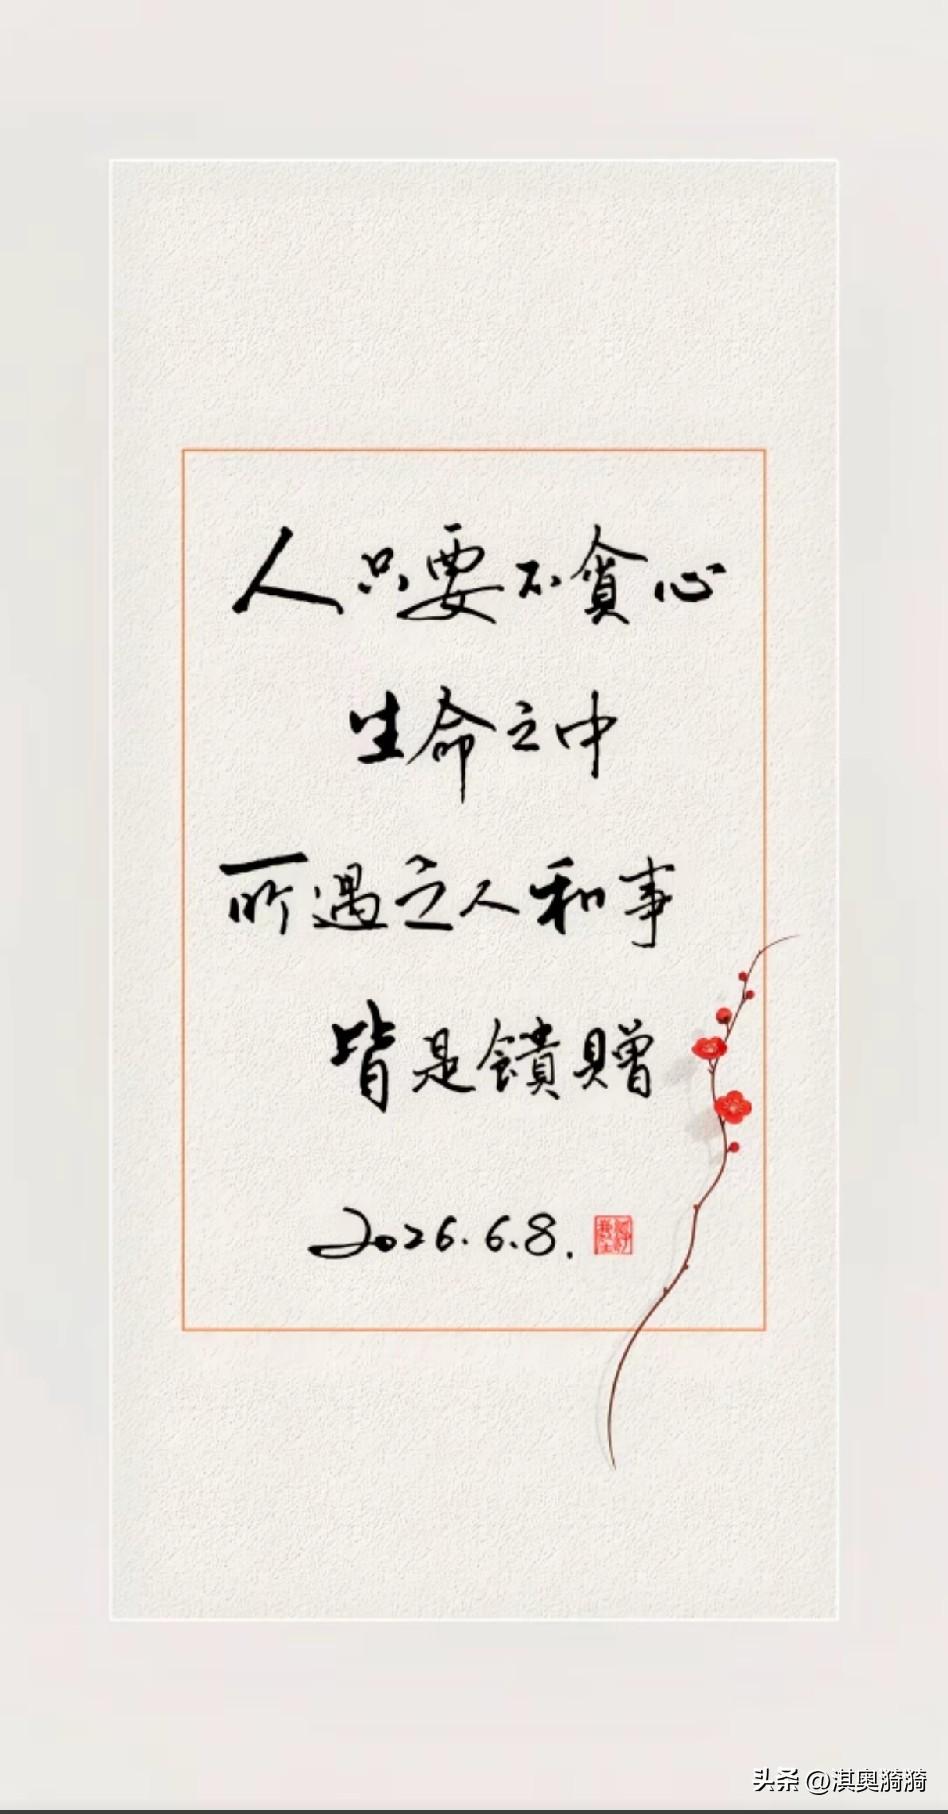 人只要不貪心
生命之中
所遇之人和事
皆是饋贈
2026.6.8.
头条 @淇奥漪漪